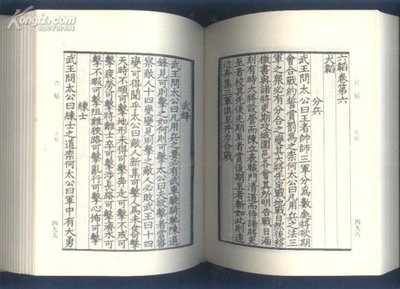 六韜卷第六
犬韜
分兵
武王問太公曰王者帥師三軍分為數處將欲期
會合戰約誓賞罰為之奈何太公曰凡用兵之法三
軍之眾必有分合之變其大將先定戰地戰日然後移
檄書與諸將吏期攻城圍邑各會其所明告戰日漏
刻有時大將設營而陳立表轅門清道而待諸將吏
至者校其先後先期至者賞後期至者斬如此則遠
近奔集三軍俱至并力合戰
四九八
武鋒
武王問太公曰凡用兵之要必有武車驍騎馳陳選
鋒見可則擊之如何則可擊太公曰夫欲擊者當審
察敵人十四變變見則擊之敵人必敗武王曰十四
變可得聞乎太公曰敵人新集可擊人馬未食可擊
天時不順可擊地形未得可擊奔走可擊不戒可
擊疲勞可擊將離士卒可擊涉長路可擊濟水可
擊不暇可擊阻難狹路可擊亂行可擊心怖可擊
練士
武王問太公曰練士之道奈何太公曰軍中有大勇
四九九